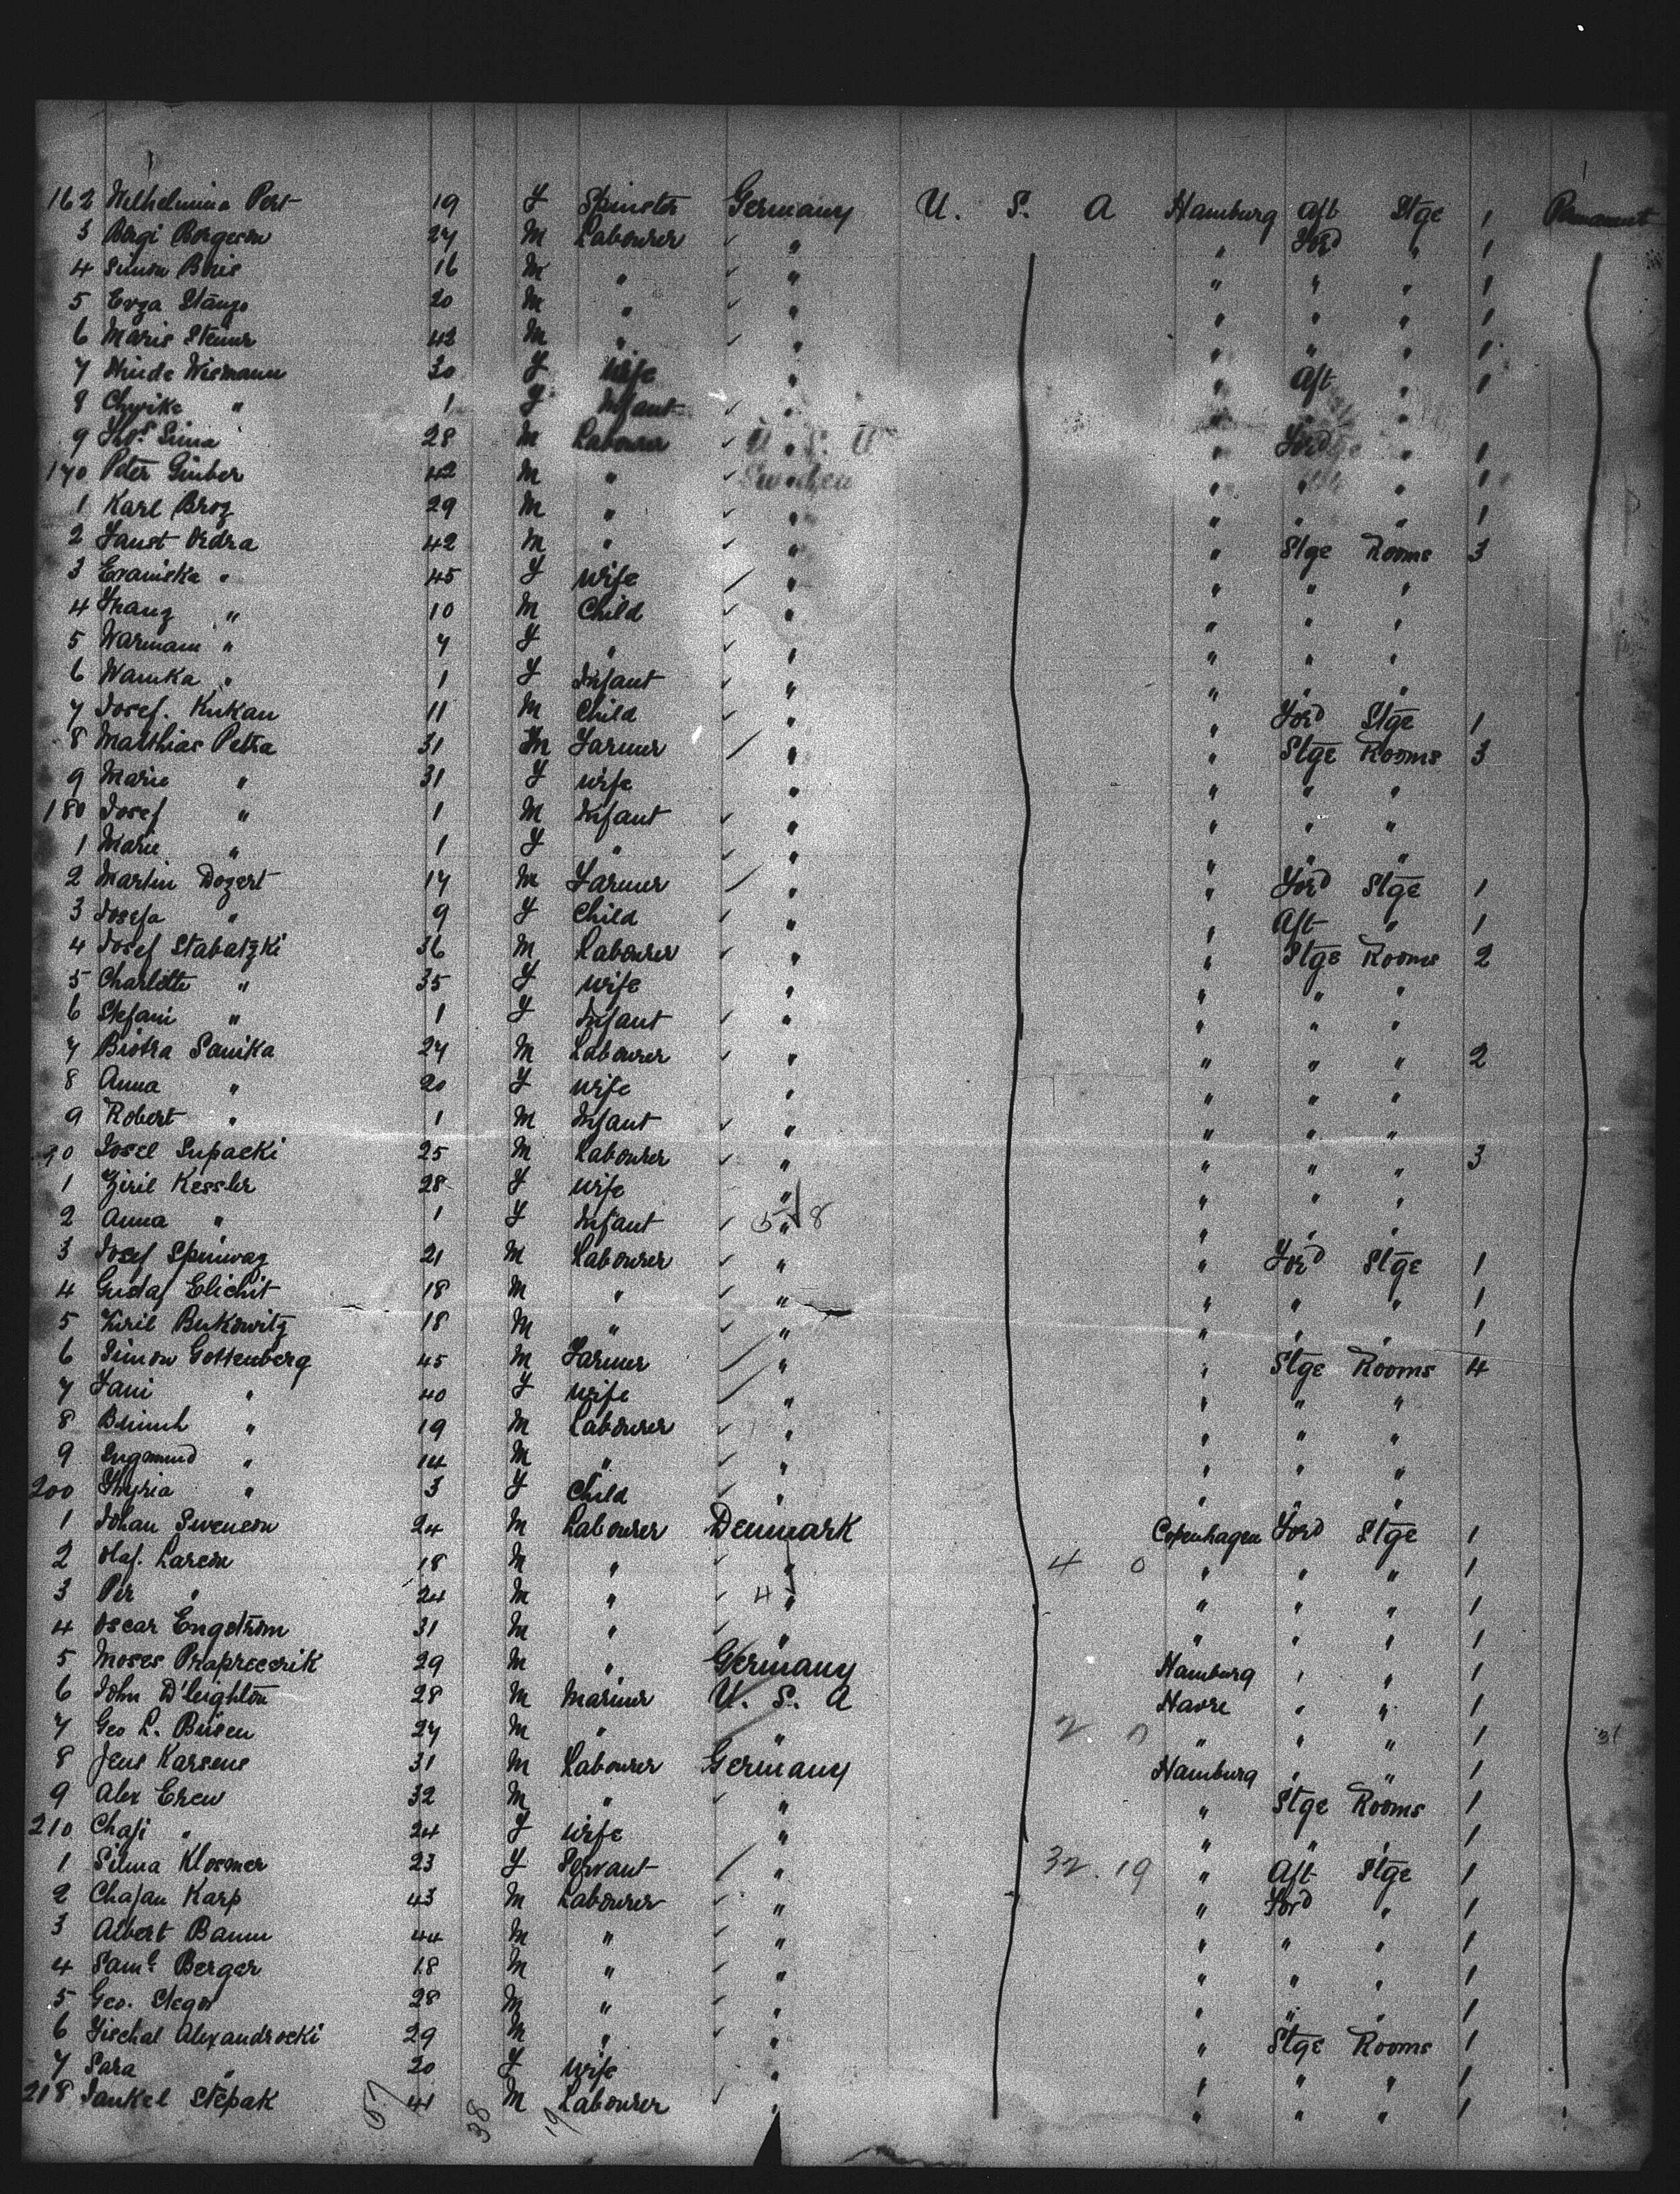 162 Wilhelmina Pert 19 F Spinster Germany U. S. A Hamburg Aft Stge 1 Permanent
3 Borgeson 27 M Labourer " " Ford " 1
4 Simon 16 M " " " " " 1
5 20 M " " " " " 1
6 Maris 42 M " " " " " 1
7 Hinde Wiemann 30 F Wife " " Aft " 1
8 " 1 F Infant " " " "
9 Thos Sima 28 M Labourer " " Ford " 1
170 Peter Ginber 42 M " " " " " 1
1 Karl Broz 29 M " " " " " 1
2 Faust Ordra 42 M " " " Stge Rooms 3
3 " 45 F Wife " " " "
4 Franz " 10 M Child " " " "
5 " 7 F " " " " "
6 Wamka " 1 F Infant " " " "
7 Josef. Kukan 11 M Child " " Ford Stge 1
8 Matthias Petra 31 M Farmer " " Stge Rooms 3
9 Marie " 31 F Wife " " " "
180 Josef " 1 M Infant " " " "
1 Marie " 1 F " " " " "
2 Martin Dozert 17 M Farmer " " Ford Stge 1
3 Josefa " 9 F Child " " Aft " 1
4 Josef Stabatzki 36 M Labourer " " Stge Rooms 2
5 Charlotte " 35 F Wife " " " "
6 Stefani " 1 F Infant " " " "
7 Biotra Sanika 27 M Labourer " " " " 2
8 Anna " 20 F Wife " " " "
9 Robert " 1 M Infant " " " "
90 Josel Supacki 25 M Labourer " " " " 3
1 Kessler 28 F Wife " " " "
2 Anna " 1 F Infant " 5 8 " " "
3 Josef Spinwag 21 M Labourer " " Ford Stge 1
4 Gustaf Elichit 18 M " " " " " 1
5 Kiril Bukowitz 18 M " " " " " 1
6 Simon Gottenberg 45 M Farmer " " Stge Rooms 4
7 Fani " 40 F Wife " " " "
8 " 19 M Labourer " " " "
9 " 14 M " " " " "
200 " 3 F Child " " " "
1 Johan Swenson 24 M Labourer Denmark Copenhagen Ford Stge 1
2 Olaf. Larson 18 M " " 4 0 " " " 1
3 Per " 24 M " 4 " " " " 1
4 Oscar Engström 31 M " " " " " 1
5 Moses 29 M " Germany Hamburg " " 1
6 John D'leighton 28 M Mariner U. S. A Havre " " 1
7 Geo L. 27 M " " 2 0 " " " 1 31
8 Jens Karsens 31 M Labourer Germany Hamburg " " 1
9 Alex Erew 32 M " " " Stge Rooms 1
210 Chaji " 24 F Wife " " " " 1
1 Silma Klosmer 23 F Servant " 32 . 19 " Aft Stge 1
2 Chajan Karp 43 M Labourer " " Ford " 1
3 Albert Baum 44 M " " " " " 1
4 Saml Berger 18 M " " " " " 1
5 Geo. 28 M " " " " " 1
6 Fischal Alexandrocki 29 M " " " Stge Rooms 1
7 Sara " 20 F Wife " " " " 1
218 Jankel Stepak 41 M Labourer " " " " 1
57 38 19